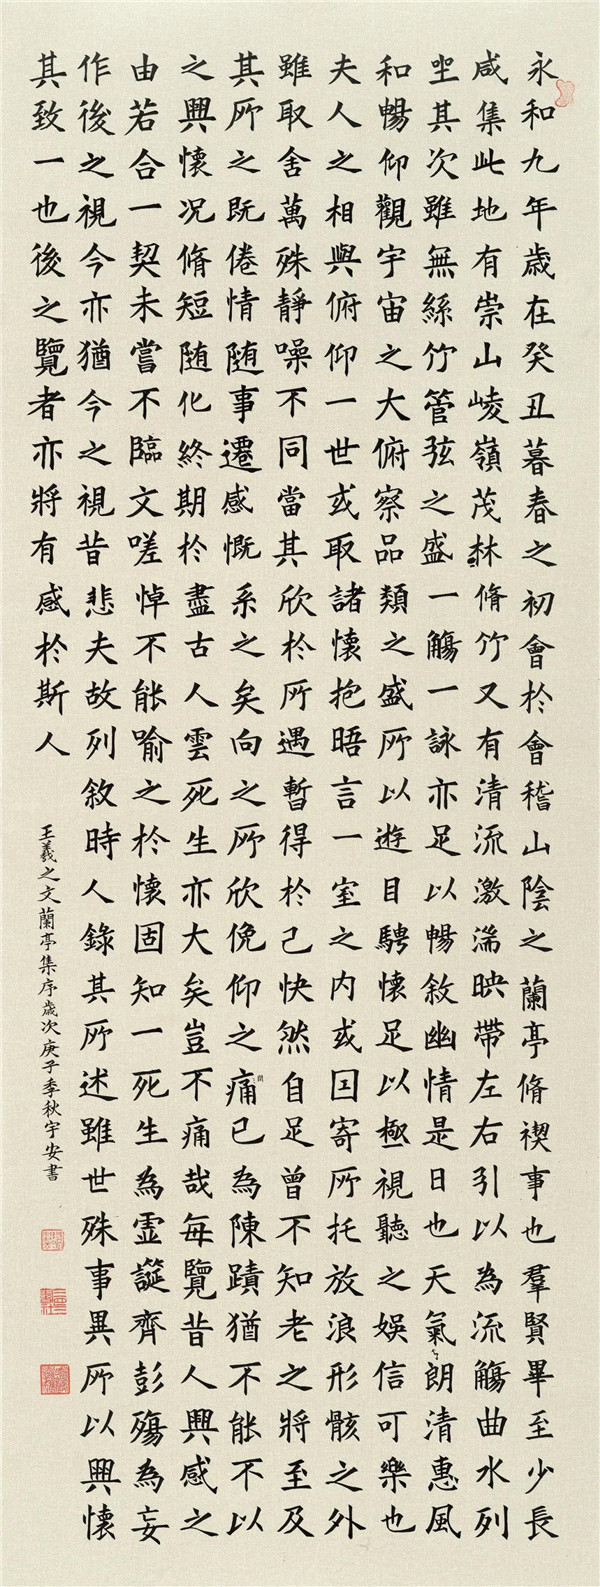 永和九年歲在癸丑暮春之初會於會稽山陰之蘭亭脩禊事也羣賢畢至少長
咸集此地有崇山崚嶺茂林脩竹又有清流激湍映帶左右引以為流觴曲水列
坐其次雖無絲竹管弦之盛一觴一詠亦足以暢敘幽情是日也天氣朗清惠風
和暢仰觀宇宙之大俯察品類之盛所以遊目騁懷足以極視聽之娛信可樂也
夫人之相與俯仰一世或取諸懷抱晤言一室之内或因寄所托放浪形骸之外
雖取舍萬殊靜噪不同當其欣於所遇暫得於己快然自足曾不知老之將至及
其所之既倦情随事遷感慨系之矣向之所欣俛仰之痛間已為陳蹟猶不能不以
之興懷况脩短随化終期於盡古人雲死生亦大矣豈不痛哉每覽昔人興感之
由若合一契未嘗不臨文嗟悼不能喻之於懷固知一死生為虛誕齊彭殤為妄
作後之視今亦猶今之視昔悲夫故列敘時人錄其所述雖世殊事異所以興懷
其致一也後之覽者亦將有感於斯人
王羲之文蘭亭集序歲次庚子季秋宇安書